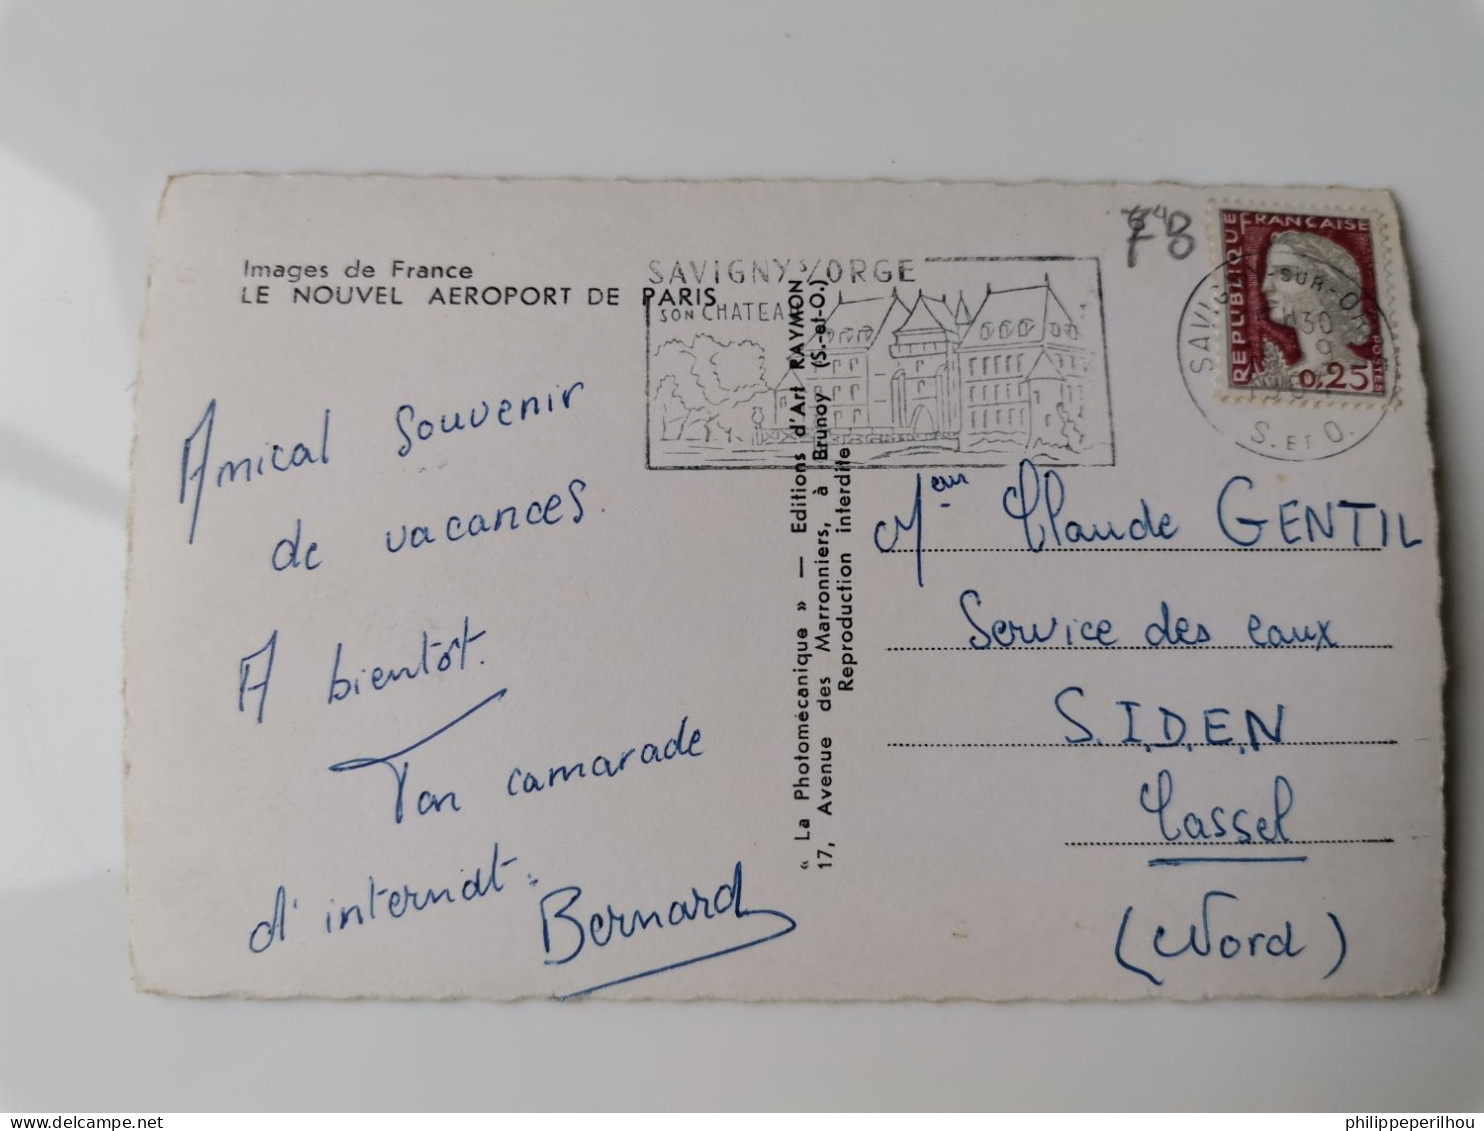 Images de France
LE NOUVEL AEROPORT DE PARIS
Amical souvenir
de vacances.
A bientôt.
Ton camarade
d'internat.
Bernard
« La Photomécanique » — Editions d'Art RAYMON
17, Avenue des Marronniers, à Brunoy (S.-et-O.)
Reproduction interdite
SAVIGNY S/ORGE
SON CHATEAU
RÉPUBLIQUE FRANÇAISE
POSTES
0,25
S. ET O.
Mr Claude GENTIL
Service des eaux
S.I.D.E.N
Cassel
(Nord)
philippeperilhou